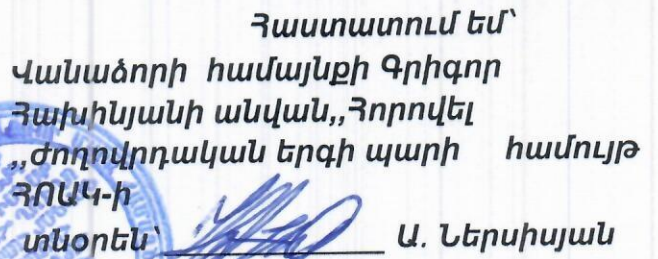 Հաստատում եմ՝
Վանաձորի համայնքի Գրիգոր
Հախինյանի անվան,,Հորովել
,,ժողովրդական երգի պարի համույթ
ՀՈԱԿ-ի
տնօրեն՝ ______________ Ա. Ներսիսյան